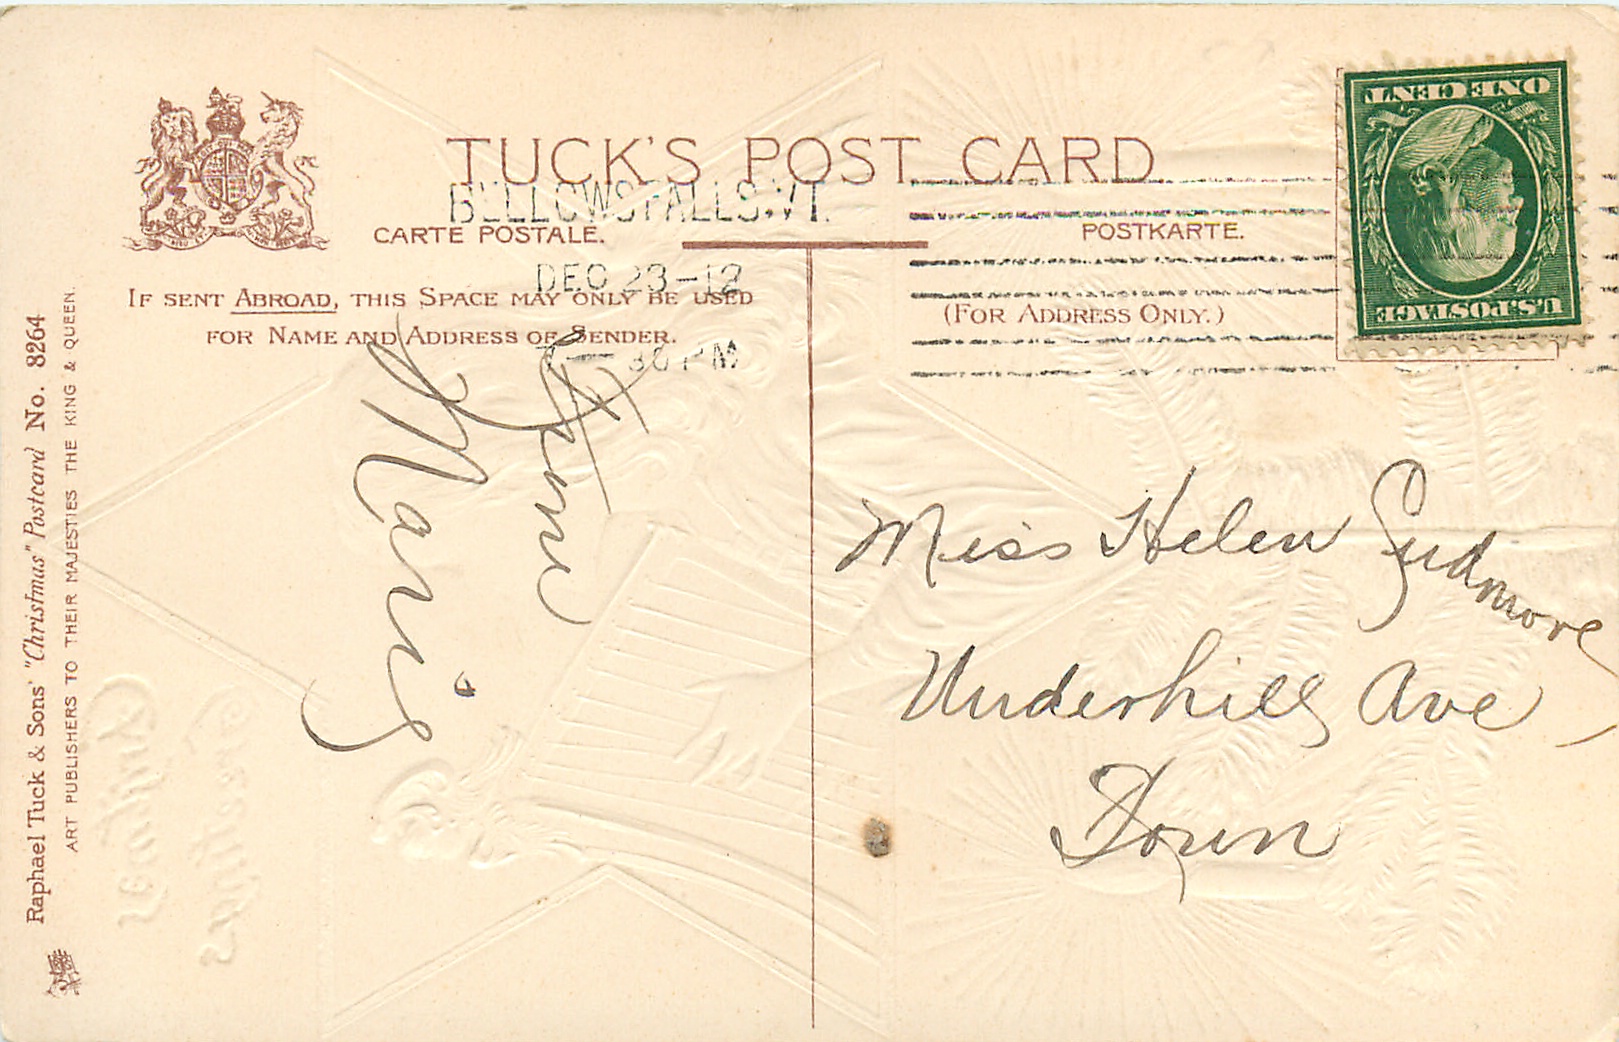 TUCK'S POST CARD
BELLOWS FALLS, VT.
CARTE POSTALE.
POSTKARTE.
DEC 23-12
7-30 PM
IF SENT ABROAD, THIS SPACE MAY ONLY BE USED
FOR NAME AND ADDRESS OF SENDER.
(FOR ADDRESS ONLY.)
ONE CENT
U.S. POSTAGE
Raphael Tuck & Sons' "Christmas" Postcard No. 8264
ART PUBLISHERS TO THEIR MAJESTIES THE KING & QUEEN.
Miss Helen Cudmore
Underhill Ave
Town